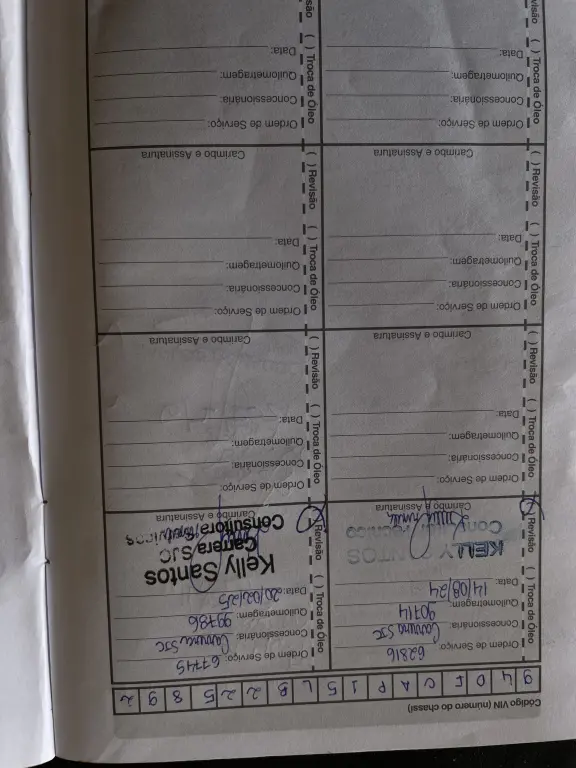 Código VIN (número do chassi)
9 4 D F C A P 1 5 L B 2 2 5 8 9 2
( ) Troca de Óleo (X) Revisão
Ordem de Serviço: 62816
Concessionária: Carrera SJC
Quilometragem: 90714
Data: 14/08/24
KELLY SANTOS
Técnico
Carimbo e Assinatura
( ) Troca de Óleo (X) Revisão
Ordem de Serviço: 67745
Concessionária: Carrera SJC
Quilometragem: 99786
Data: 20/02/25
Kelly Santos
Carrera/SJC
Consultora
Carimbo e Assinatura
( ) Troca de Óleo ( ) Revisão
Ordem de Serviço:
Concessionária:
Quilometragem:
Data:
Carimbo e Assinatura
( ) Troca de Óleo ( ) Revisão
Ordem de Serviço:
Concessionária:
Quilometragem:
Data:
Carimbo e Assinatura
( ) Troca de Óleo ( ) Revisão
Ordem de Serviço:
Concessionária:
Quilometragem:
Data:
Carimbo e Assinatura
( ) Troca de Óleo ( ) Revisão
Ordem de Serviço:
Concessionária:
Quilometragem:
Data:
Carimbo e Assinatura
( ) Troca de Óleo
Ordem de Serviço:
Concessionária:
Quilometragem:
Data:
( ) Troca de Óleo
Ordem de Serviço:
Concessionária:
Quilometragem:
Data: